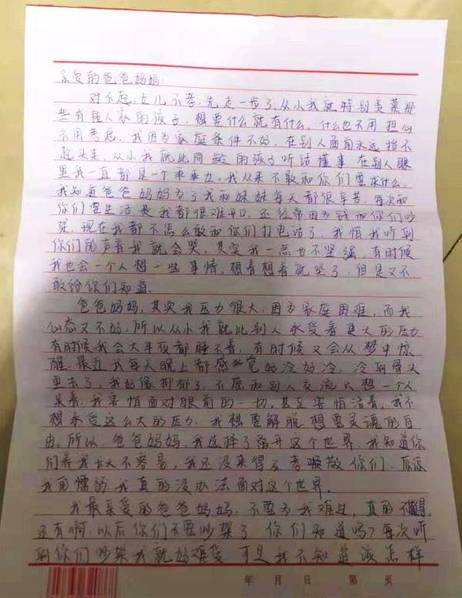 亲爱的爸爸妈妈:
对不起,女儿不孝,先走一步了,从小我就特别羡慕那
些有钱人家的孩子,想要什么就有什么,什么也不用担心
不用考虑,我因为家庭条件不好,在别人面前永远抬不
起头来,从小我就比同龄的孩子听话懂事,在别人眼
里我一直都是一个乖乖女,我从来不敢和你们要求什么,
我知道爸爸妈妈为了我和妹妹每天都很辛苦,每次和
你们要生活费我都很难开口,还经常因为钱和你们吵
架,现在我都不怎么敢和你们打电话了,我怕我听到
你们的声音我就会哭,其实我一点也不坚强,有时候
我也会一个人想一些事情,想着想着就哭了,但是又不
敢给你们知道.
爸爸妈妈,其实我压力很大,因为家庭困难,而我
心态又不好,所以从小我就比别人承受着更大的压力
有时候我会大半夜都睡不着,有时候又会从梦中惊
醒,最近我每天晚上都感觉的冷好冷,
更去了,我好像抑郁了,不愿和别人交流只想一个人
呆着,我害怕面对眼前的一切,甚至害怕活着,我不
想承受这么大的压力,我想要解脱,想要灵魂的自
由,所以,爸爸妈妈,我选择了离开这个世界,我知道你
们养我长大不容易,我还没来得及孝顺你们,原谅
我的懦弱我真的没办法面对这个世界.
我最亲爱的爸爸妈妈,不要为我难过,真的不值得
还有啊,以后你们不要吵架了,你们知道吗?每次听
到你们吵架我就好难受,可是我不知道该怎样
年 月 日 第 页